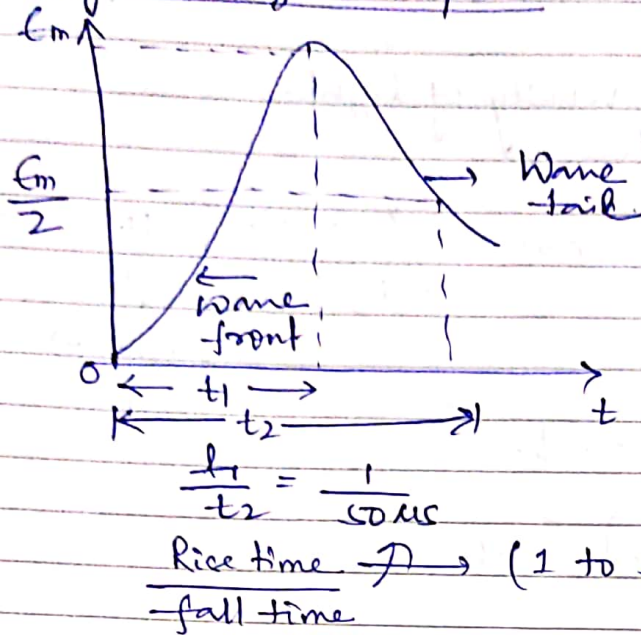 Em
Em
2
Wave
tail
Wave
front
0
t1
t
t2
t1 = 1
t2 50 μs
Rise time → (1 to
fall time